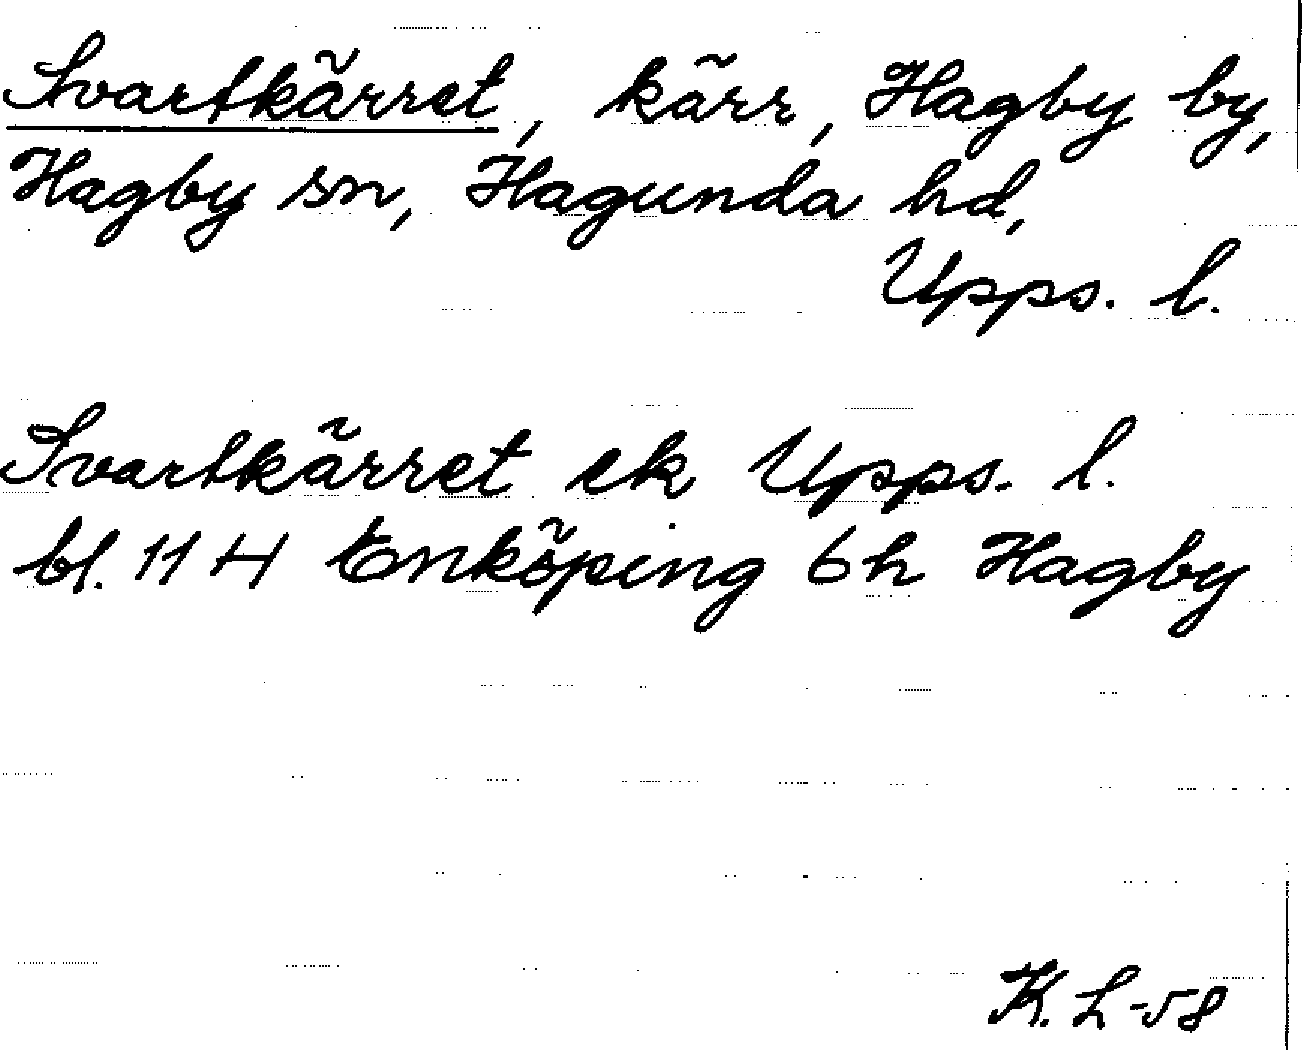 Svartkärret, kärr, Hagby by,
Hagby sn, Hagunda hd,
Upps. l.
Svartkärret ek Upps. l.
bl. 11 H Enköping 6h Hagby
K. L-58